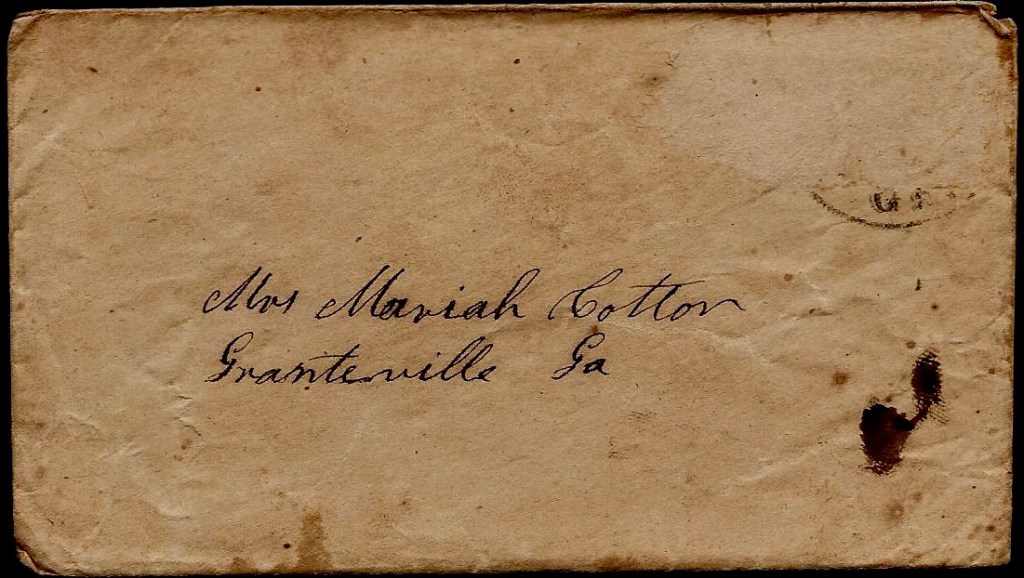 GA
Mrs Mariah Cotton
Grantenville Ga